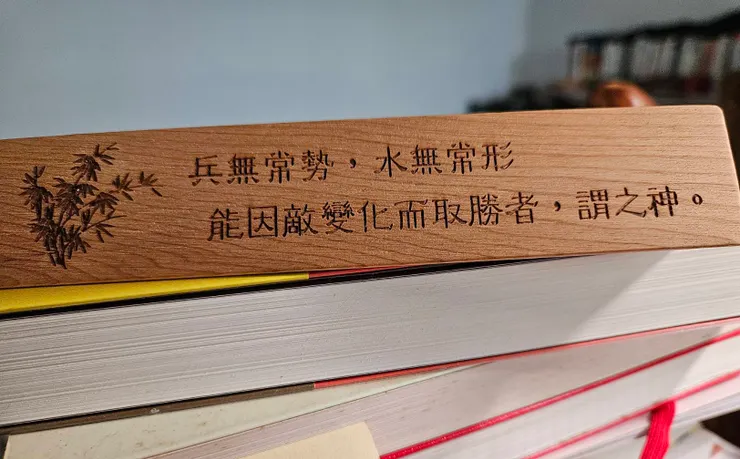 兵無常勢，水無常形
能因敵變化而取勝者，謂之神。